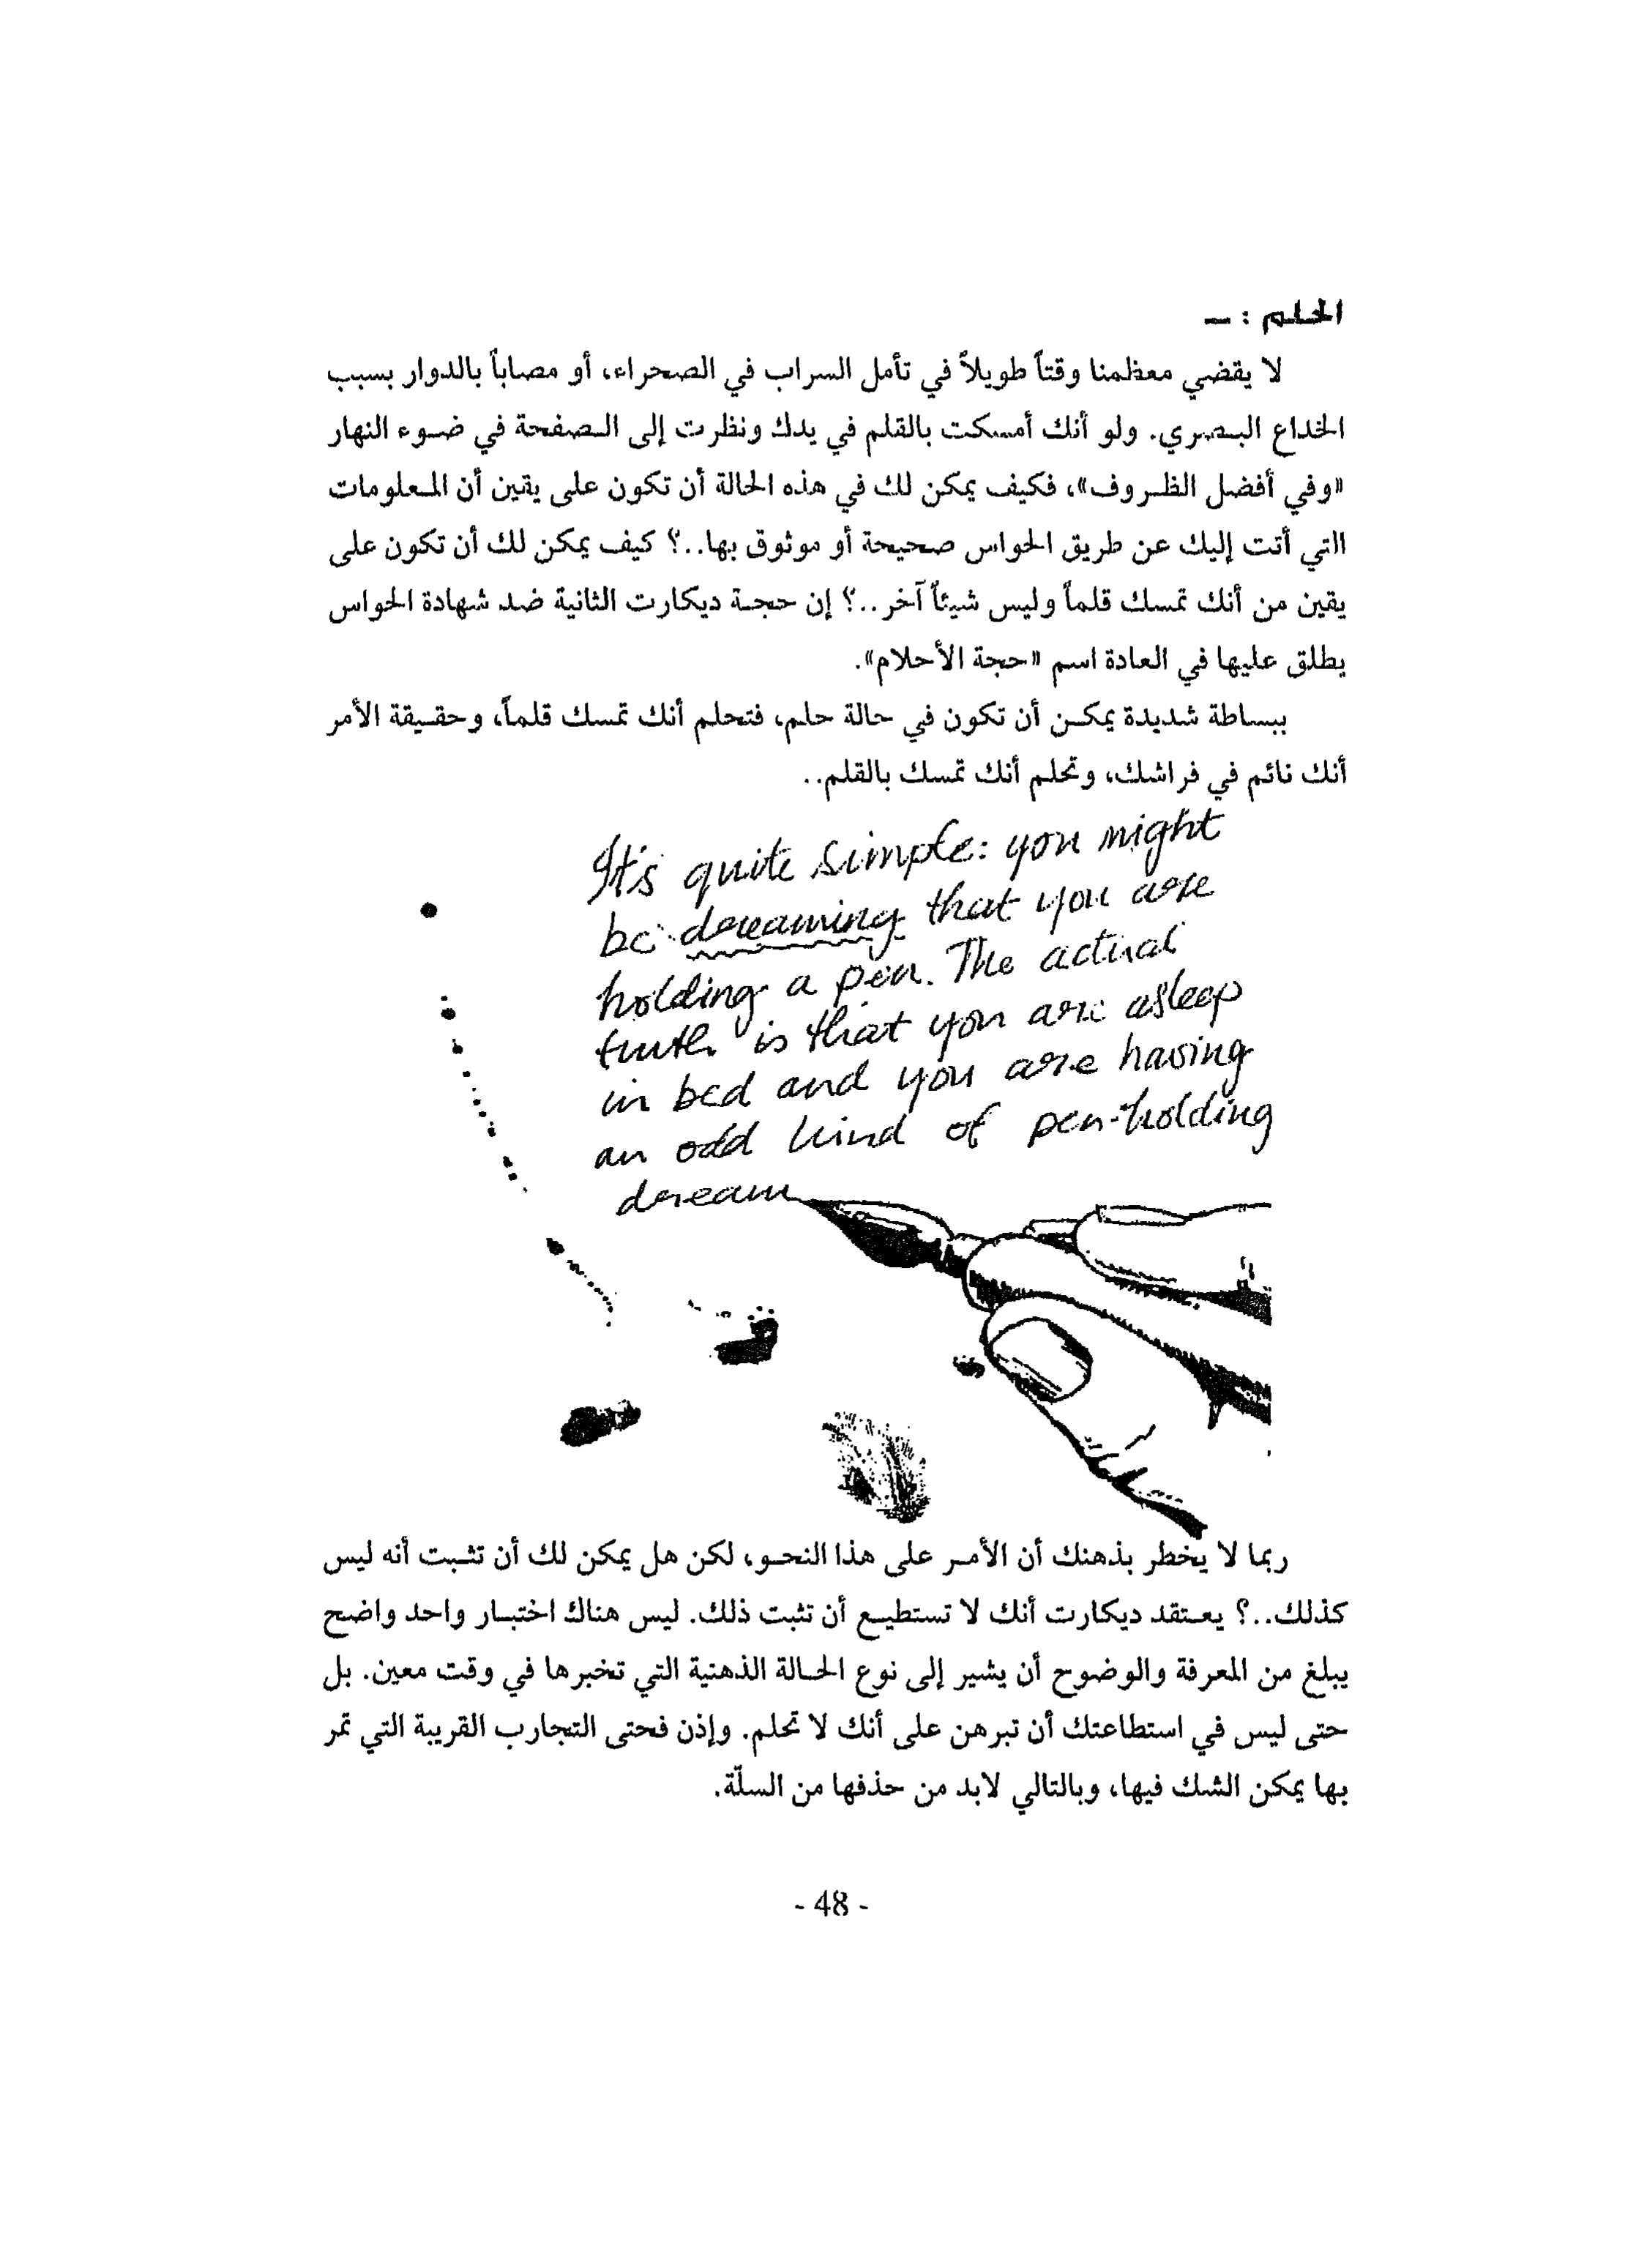 الحلم : –
لا يقضي معظمنا وقتاً طويلاً في تأمل السراب في الصحراء، أو مصاباً بالدوار بسبب
الخداع البصري. ولو أنك أمسكت بالقلم في يدك ونظرت إلى الصفحة في ضوء النهار
«وفي أفضل الظروف»، فكيف يمكن لك في هذه الحالة أن تكون على يقين أن المعلومات
التي أتت إليك عن طريق الحواس صحيحة أو موثوق بها..؟ كيف يمكن لك أن تكون على
يقين من أنك تمسك قلماً وليس شيئاً آخر..؟ إن حجة ديكارت الثانية ضد شهادة الحواس
يطلق عليها في العادة اسم «حجة الأحلام».
ببساطة شديدة يمكن أن تكون في حالة حلم، فتحلم أنك تمسك قلماً، وحقيقة الأمر
أنك نائم في فراشك، وتحلم أنك تمسك بالقلم..
It's quite simple: you might
be dreaming that you are
holding a pen. The actual
truth is that you are asleep
in bed and you are having
an odd kind of pen-holding
dream
ربما لا يخطر بذهنك أن الأمر على هذا النحو، لكن هل يمكن لك أن تثبت أنه ليس
كذلك..؟ يعتقد ديكارت أنك لا تستطيع أن تثبت ذلك. ليس هناك اختبار واحد واضح
يبلغ من المعرفة والوضوح أن يشير إلى نوع الحالة الذهنية التي تخبرها في وقت معين. بل
حتى ليس في استطاعتك أن تبرهن على أنك لا تحلم. وإذن فحتى التجارب القريبة التي تمر
بها يمكن الشك فيها، وبالتالي لابد من حذفها من السلّة.
- 48 -